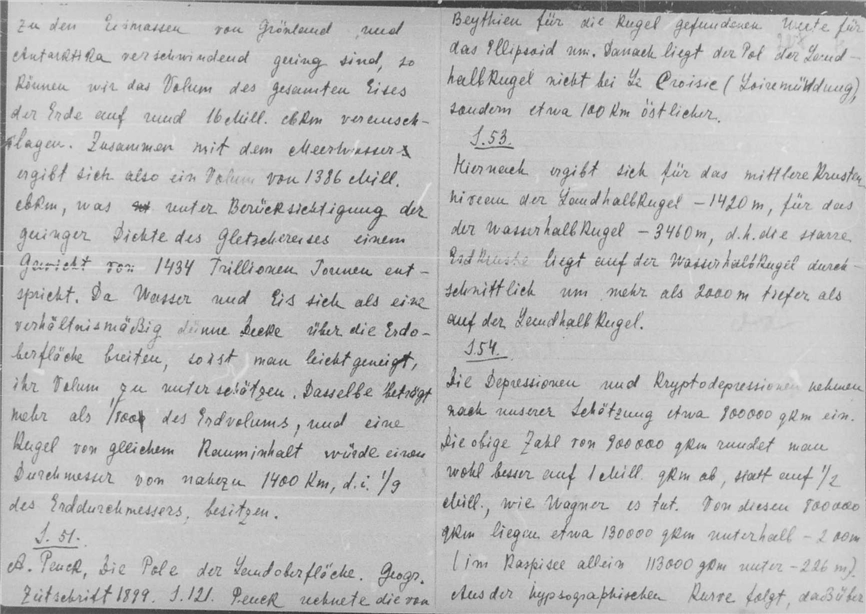 zu den Eismassen von Grönland, und
Antarktika verschwindend gering sind, so
können wir das Volum des gesamten Eises
der Erde auf rund 16 Mill. cbkm veransch-
lagen. Zusammen mit dem Meerwasser
ergibt sich also ein Volum von 1386 Mill.
cbkm, was unter Berücksichtigung der
geringer Dichte des Gletschereises einem
Gewicht von 1434 Trillionen Tonnen ent-
spricht. Da Wasser und Eis sich als eine
verhältnismäßig dünne Decke über die Erdo-
berfläche breiten, so ist man leicht geneigt,
ihr Volum zu unterschätzen. Dasselbe beträgt
mehr als des Erdvolums, und eine
Kugel von gleichem Rauminhalt würde einen
Durchmesser von nahezu 1400 km, d.i. 1/9
des Erddurchmessers, besitzen.
S. 51.
A. Penck, Die Pole der Landoberfläche. Geogr.
Zeitschrift 1899. S. 121. Penck rechnete die von
Beythien für die Kugel gefundenen Werte für
das Ellipsoid um. Danach liegt der Pol der Land-
halbkugel nicht bei Le Croisic (Loiremündung),
sondern etwa 100 km östlicher.
S. 53.
Hiernach ergibt sich für das mittlere Krusten
niveau der Landhalbkugel - 1420 m, für das
der Wasserhalbkugel - 3460 m, d.h. die starre
Erdkruste liegt auf der Wasserhalbkugel durch-
schnittlich um mehr als 2000 m tiefer als
auf der Landhalbkugel.
S. 54.
Die Depressionen und Kryptodepressionen nehmen
nach unserer Schätzung etwa 800000 qkm ein.
Die obige Zahl von 900000 qkm rundet man
wohl besser auf 1 Mill. qkm ab, statt auf 1/2
Mill., wie Wagner es tut. Von diesen 800000
qkm liegen etwa 130000 qkm unterhalb - 200m
(im Kaspisee allein 113000 qkm unter - 226 m).
Aus der hypsographischen Kurve folgt, daß über